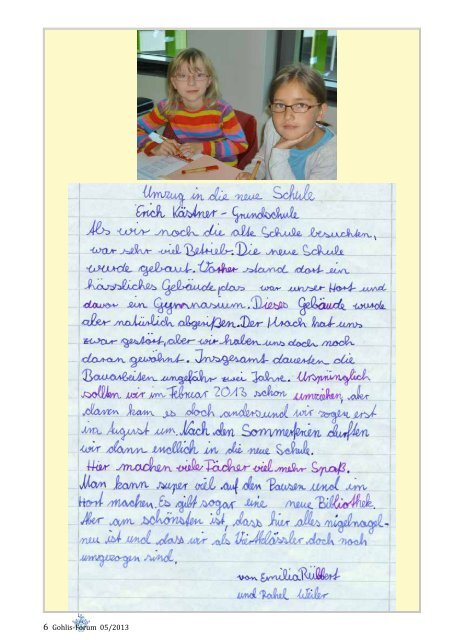 Umzug in die neue Schule
Erich Kästner - Grundschule
Als wir noch die alte Schule besuchten,
war sehr viel Betrieb. Die neue Schule
wurde gebaut. Vorher stand dort ein
hässliches Gebäude, das war unser Hort und
davor ein Gymnasium. Dieses Gebäude wurde
aber natürlich abgerißen. Der Krach hat uns
zwar gestört, aber wir haben uns doch noch
daran gewöhnt. Insgesamt dauerten die
Bauarbeiten ungefähr zwei Jahre. Ursprünglich
sollten wir im Februar 2013 schon umziehen, aber
dann kam es doch anders und wir zogen erst
im August um. Nach den Sommerferien durften
wir dann endlich in die neue Schule.
Hier machen viele Fächer viel mehr Spaß.
Man kann super viel auf den Pausen und im
Hort machen. Es gibt sogar eine neue Bibliothek.
Aber am schönsten ist, dass hier alles nigelnagel-
neu ist und dass wir als Viertklässler doch noch
umgezogen sind.
von Emilia
und Rahel Weiler
6 Gohlis Forum 05/2013